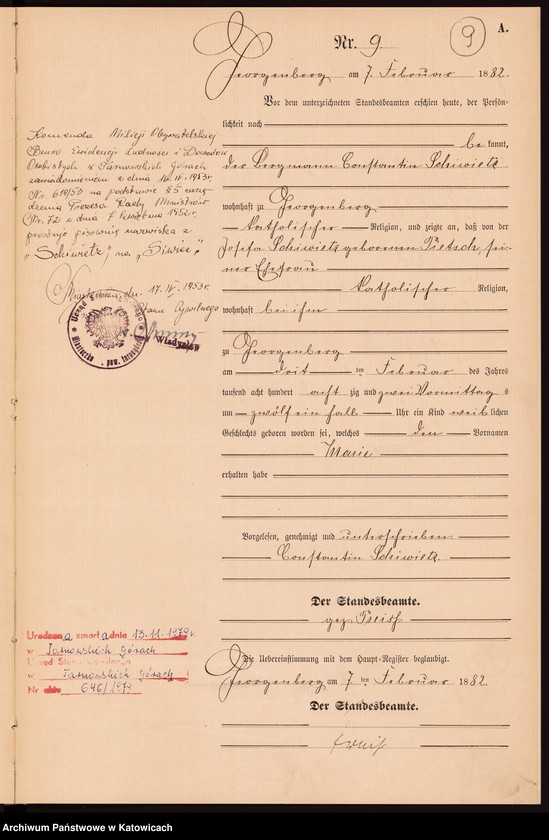 A.
Nr. 9.
9
Georgenberg am 7. Februar 1882.
Vor dem unterzeichneten Standesbeamten erschien heute, der Persön-
lichkeit nach
be kannt,
der Bergmann Constantin Schiwietz
wohnhaft zu Georgenberg
katholischer Religion, und zeigte an, daß von der
Josefa Schiwietz geborenen Pietsch, sei-
ner Ehefrau
katholischer Religion,
wohnhaft bei ihm
zu Georgenberg
am drit ten Februar des Jahres
tausend acht hundert acht zig und zwei Vormittag s
um zwölf ein halb Uhr ein Kind weib lichen
Geschlechts geboren worden sei, welches den Vornamen
Marie
erhalten habe
Vorgelesen, genehmigt und unterschrieben
Constantin Schiwietz.
Der Standesbeamte.
gez.
Die Uebereinstimmung mit dem Haupt-Register beglaubigt.
Georgenberg am 7 ten Februar 1882.
Der Standesbeamte.
Komenda Milicji Obywatelskiej
Biuro Ewidencji Ludności i Dowodów
Osobistych w Tarnowskich Górach
zawiadomieniem z dnia IV. 1953r.
Nr. 619/53 na podstawie §5 zarzą-
dzenia Prezesa Rady Ministrów
Nr. 72 z dnia 1952r.
pisownię nazwiska z
"Schiwietz" na "Siwiec".
dn. 17. IV. 1953r.
Stanu Cywilnego
Władysław
Urodzona zmarła dnia 13.11.1979r.
w Tarnowskich Górach
Urząd Stanu Cywilnego
w Tarnowskich Górach
Nr aktu 646/1979
Archiwum Państwowe w Katowicach